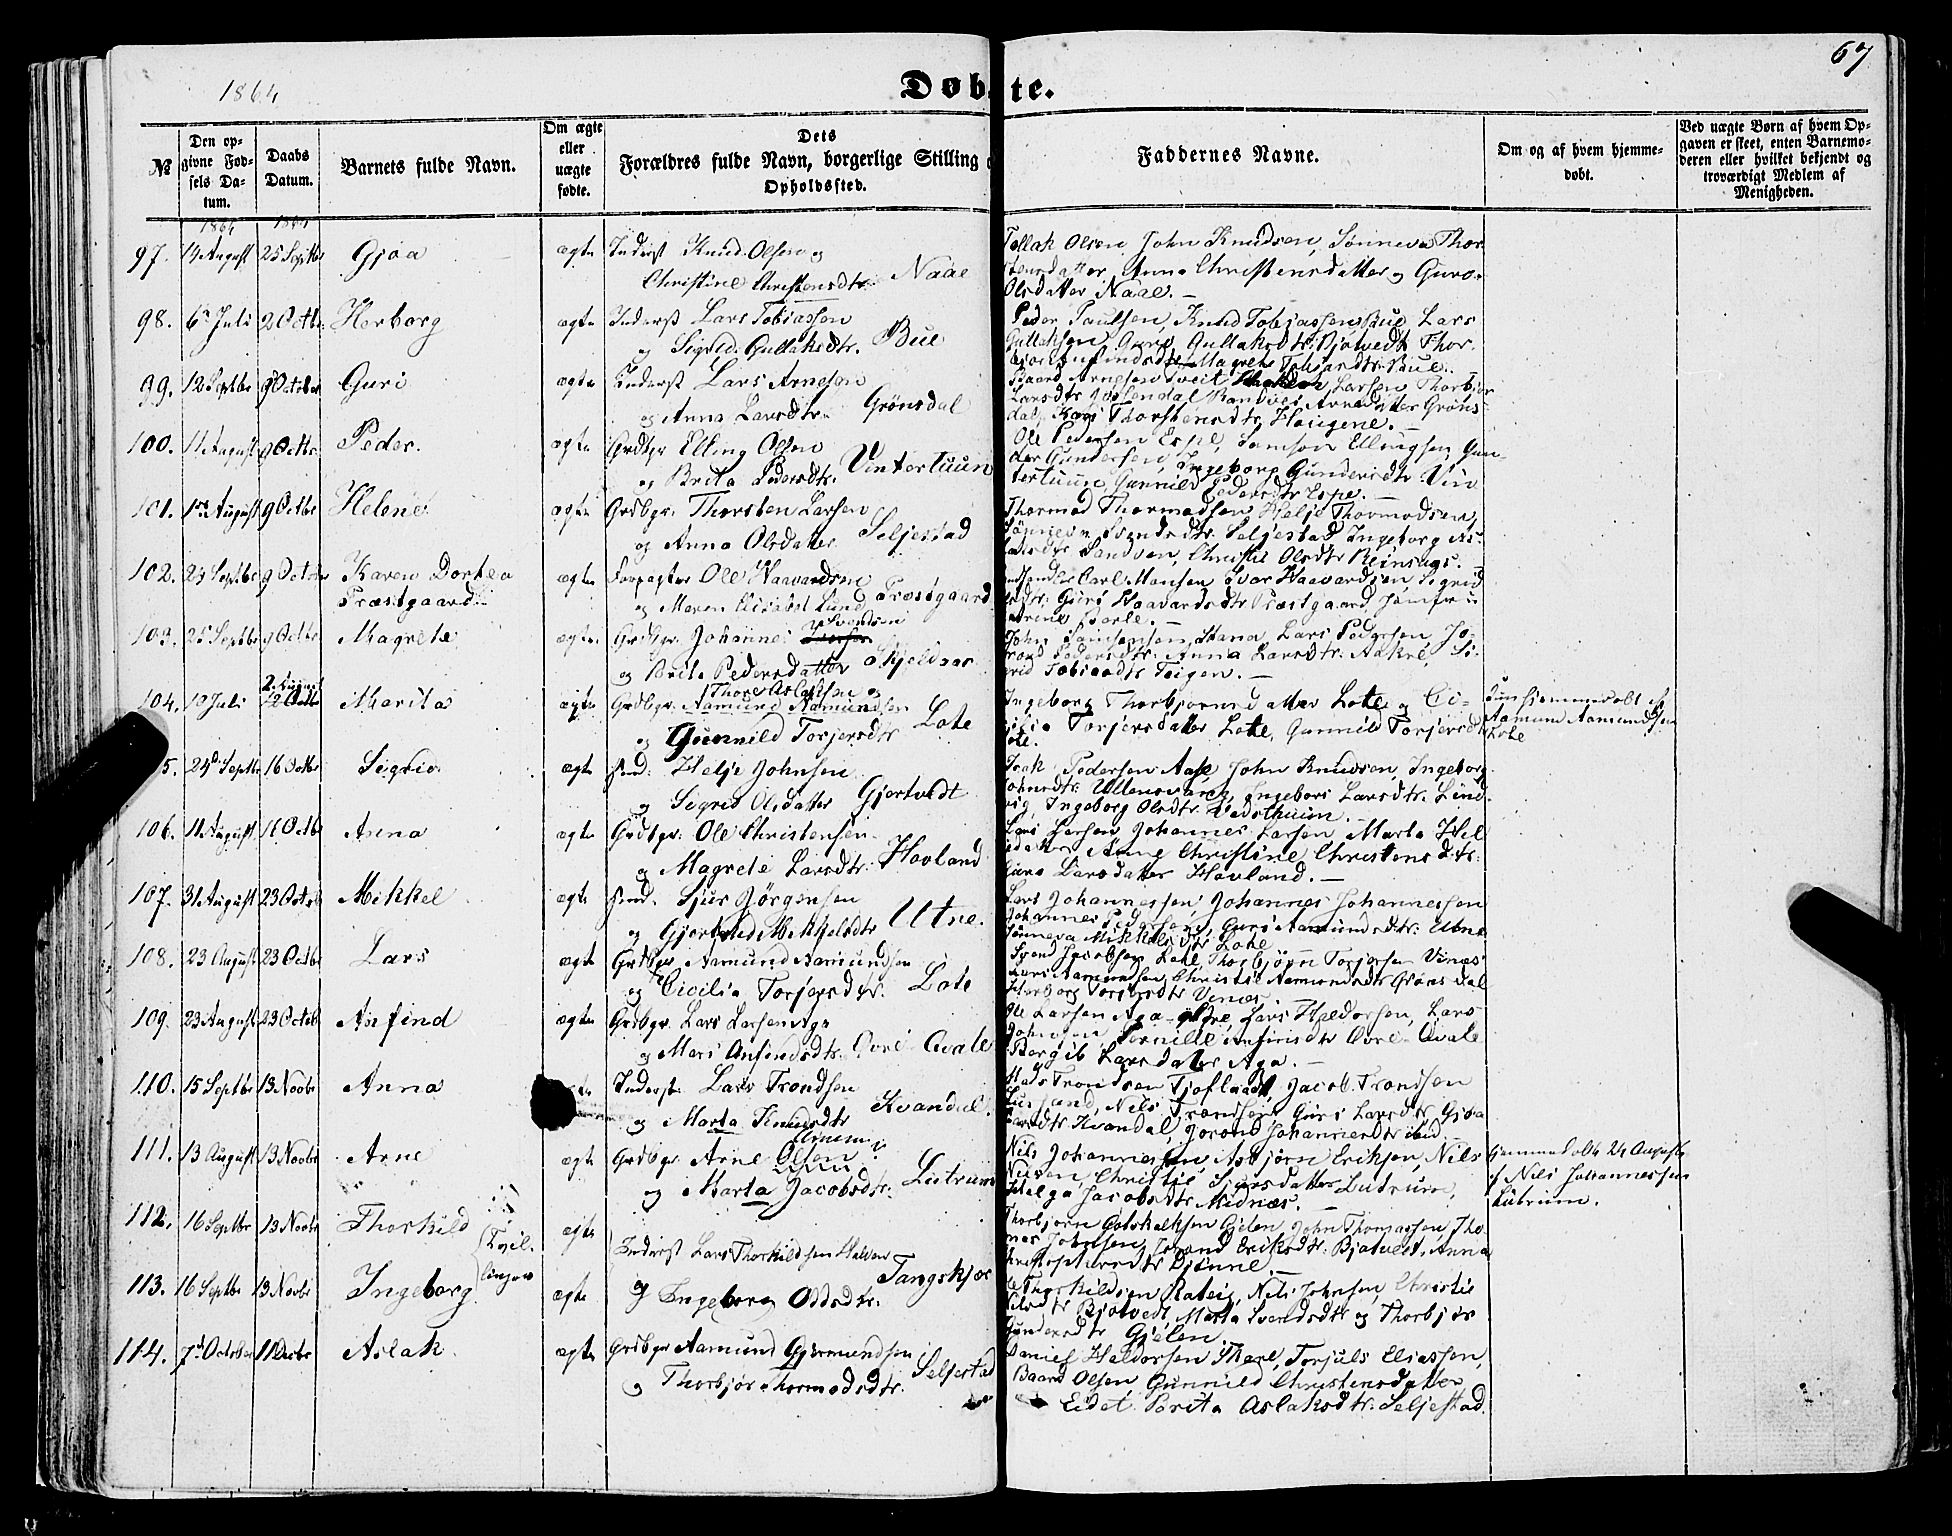 67
1864
Døbte.
№
Den opgivne Fødsels Datum.
Daabs Datum.
Barnets fulde Navn.
Om ægte eller uægte fødte.
Dets Forældres fulde Navn, borgerlige Stilling
Opholdssted.
Faddernes Navne.
Om og af hvem hjemmedøbt.
Ved uægte Børn af hvem Opgaven er skeet, enten Barnemoderen eller hvilket bekjendt og troværdigt Medlem af Menigheden.
1864 1864
97. 14 August 25 Septbr Gjøa ægte Inderst Knud Olsen og
Christine Christensdtr. Naae
Tollak Olsen, John Knudsen, Sønneva Thor
stensdatter, Anna Christensdatter og Guro
Olsdatter Naae. —
98. 6 Juli 2 Octbr Herborg ægte Inderst Lars Tobiassen
og Sigrid Gullaksdtr. Bue
Peder Paulsen, Knud Tobiassen Bue, Lars
Gullaksen, Guro Gullaksdtr. Bjotvedt, Thor
Magrete Tobiasdtr. Bue.
99. 12 Septbr 9 October Guri ægte Inderst Lars Arnesen
og Anna Larsdtr. Grønsdal
Baard Arnesen Tveit, Larsen, Thorbjør
Larsdtr Jøssendal, Randvei Arnedatter Grøns-
dal, Kari Thorstensdtr. Haugene. —
100. 11 August 9 Octbr. Peder. ægte Grdbgr Elling Olsen
og Brita Pedersdtr. Vintertuun
Ole Pedersen Espe, Samson Ellingsen, Gun-
der Gundersen, Ingeborg Gundersdtr. Vin
tertuun, Gunnild Pedersdtr Espe. —
101. August 9 Octbr Helene ægte Grdbgr. Thorsten Larsen
og Anna Olsdatter Seljestad
Thormod Thormodsen, Helje Thormodsen,
Svendsdtr. Seljestad, Ingeborg As-
Sandven, Christi Olsdtr Reinsnos.
102. 23 Septbr 9 Octobr Karen Dortea
Præstgaard
ægte Forpagter Ole Haavardsen
og Maren Elisabet Lund Præstgaard
Carl Monsen, Ivar Haavardsen, Sigrid
Guro Haavardsdtr Præstgaard, Jomfru
103. 25 Septbr 9 Octbr Magrete ægte. Grdbgr. Johannes Iversen Svendsen
og Brita Pedersdatter Skjeldaas
John Samsonsen Mana, Lars Pedersen, Jo-
rond Pedersdtr. Anna Larsdtr. Aakre, Si-
grid Tobiasdtr Teigen. —
104. 10 Juli 2 August 2 Octbr Marita ægte Grdbgr. Thore Aslaksen og
Aamund Aamundsen
og Gunnild Torjersdtr Lote
Ingeborg Thorbjørnsdatter Lote og Ci-
cilia Torjersdatter Lote, Gunnild Torjersd
Lote.
hjemmedøbt af
Aamund Aamundsen
Lote
5. 24 Septbr 16 Octbr Sigrid ægte Ind. Helje Johnsen
og Sigrid Olsdatter Gjertvedt
Isak Pedersen Aase, John Knudsen, Ingeborg
Johnsdtr. Ullensvang, Ingebori Larsdtr. Lind-
vig, Ingeborg Olsdtr. Vedsthuun.
106. 11 August. Octbr Anna ægte Grdbgr. Ole Christensen
og Magrete Larsdtr. Hovland
Lars Larsen, Johannes Larsen, Marta Hel
gedatter, Anne Christine Christensdtr:
Guro Larsdatter Hovland. —
107. 31 August 23 Octobr Mikkel ægte Ind. Sjur Jörgensen
og Gjertrud Mikkelsdtr Utne.
Lars Johannessen, Johannes Johannessen
Johannes Pedersen, Guri Aamundsdtr. Utne
Sönneva Mikkelsdtr Lote
108. 23 August 23 Octbr Lars ægte Grdbgr Aamund Aamundsen
og Cicilia Torjersdtr. Lote
Svend Jacobsen Lote, Thorbjörn Torjersen Vines
Lars Aamundsen, Christi Aamundsdtr Grönsdal
Herborg Torjersdtr Vines
109. 23 August 23 Octobr Anfind ægte Grdbgr. Lars Larsen Aga
og Mari Anfindsdtr. Øvre-Qvale
Ole Larsen Aga, Lars Haldorsen, Lars
Johnsen, Pernille Anfinsdtr Øvre-Qvale
Bergit Larsdatter Aga. —
110. 15 Septbr 13 Novbr Anna Inderst. Lars Trondsen
og Marta Knudsdtr Kvandal.
Mads Trondsen Tjoflaadt, Jacob Trondsen
Nils Trondsen, Guri Larsdtr Gjøa
Larsdtr. Kvandal, Jorond Johannesdtr ibid
111. 13 August 13 Novbr Arne ægte Grdbgr. Arne Olsen
Arnem ?
og Marta Jacobsdtr. Lutrum
Nils Johannessen, Asbjørn Eriksen, Nils
Nilsen, Christi Sjursdatter Lutrum,
Helga Jacobsdtr. Midnæs. —
Hjemmedøbt 24 August
af Nils Johannessen
Lutrum.
112. 16 Septbr 13 Novbr Thorkild ægte
(Tvil-
linger
Inderst Lars Thorkildsen Halden
og Ingeborg Oddsdtr. Tangskjær
Thorbjørn Gotskalksen Gjelen, John Thomassen, Tho-
mas Johnsen, Jorond Eriksdtr. Bjotvedt, Anna
Christophersdtr Djönne. —
113. 16 Septbr 13 Novbr Ingeborg ægte
Thorkildsen Rateig, Nils Johnsen, Christi
Nilsdtr Bjotvedt, Marta Svendsdtr og Thorbjør
Gundersdtr Gjelen.
114. 7 October 11 Decbr Aslak ægte Grdbgr Aamund Gjermundsen
og Thorbjør Thormodsdtr. Seljestad
Daniel Haldorsen Mage, Torjuls Eliassen,
Baard Olsen, Gunnild Christensdatter
Eidet, Brita Aslaksdtr. Seljestad.